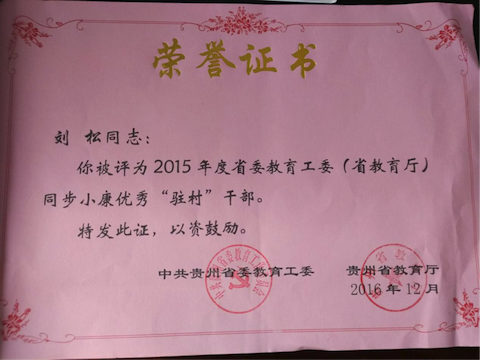 荣誉证书
刘 松同志：
你被评为2015年度省委教育工委（省教育厅）
同步小康优秀“驻村”干部。
特发此证，以资鼓励。
中共贵州省委教育工委 贵州省教育厅
2016年12月